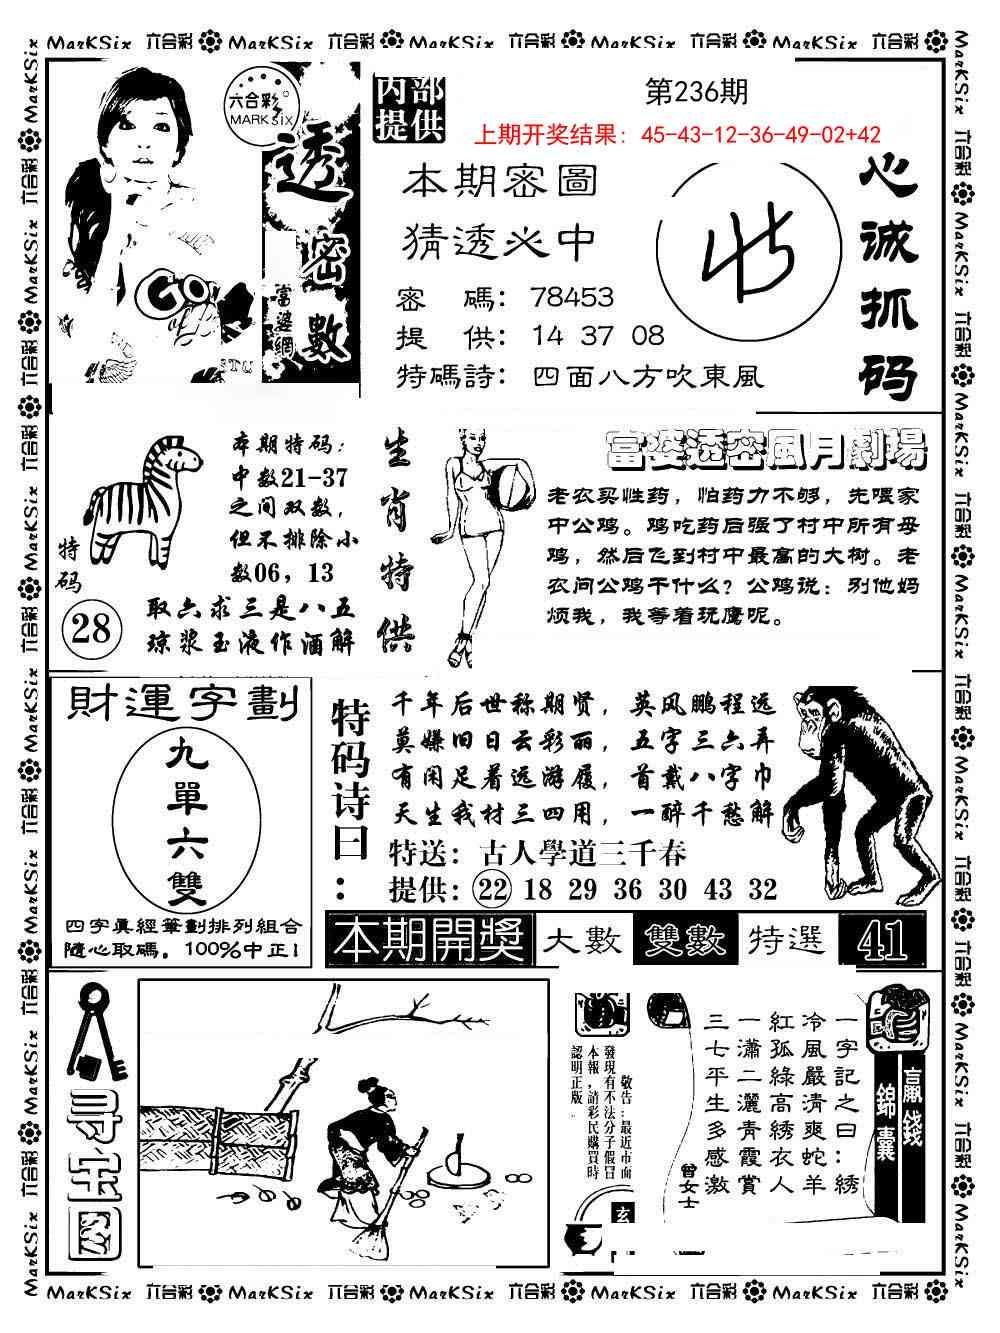 MarKSix 六合彩 MarKSix 六合彩 MarKSix 六合彩 MarKSix 六合彩 MarKSix 六合彩
六合彩
MARK SIX
透密數
富婆網
GO
内部
提供
第236期
上期开奖结果：45-43-12-36-49-02+42
本期密圖
猜透必中
密 碼：78453
提 供：14 37 08
特碼詩：四面八方吹東風
心诚抓码
本期特码：
中数21-37
之间双数，
但不排除小
数06，13
特码
28
取六求三是八五
琼浆玉液作酒解
生肖特供
富婆透密風月劇場
老农买性药，怕药力不够，先喂家
中公鸡。鸡吃药后强了村中所有母
鸡，然后飞到村中最高的大树。老
农问公鸡干什么？公鸡说：别他妈
烦我，我等着玩鹰呢。
財運字劃
九單六雙
四字真經筆劃排列組合
隨心取碼，100%中正！
特码诗曰：
千年后世称期贤，英风鹏程远
莫嫌旧日云彩丽，五字三六弄
有闲足着远游履，首戴八字巾
天生我材三四用，一醉千愁解
特送：古人學道三千春
提供：22 18 29 36 30 43 32
本期開獎 大數 雙數 特選 41
寻宝图
敬告：最近市面
發現有不法分子假冒
本報，請彩民購買時
認明正版．
玄
贏錢
錦囊
一字記之曰：綉
冷風嚴清爽蛇羊
紅孤綠高綉衣人
一瀟二灑青霞賞
三七平生多感激
曾女士
MarKSix 六合彩 MarKSix 六合彩 MarKSix 六合彩 MarKSix 六合彩 MarKSix 六合彩